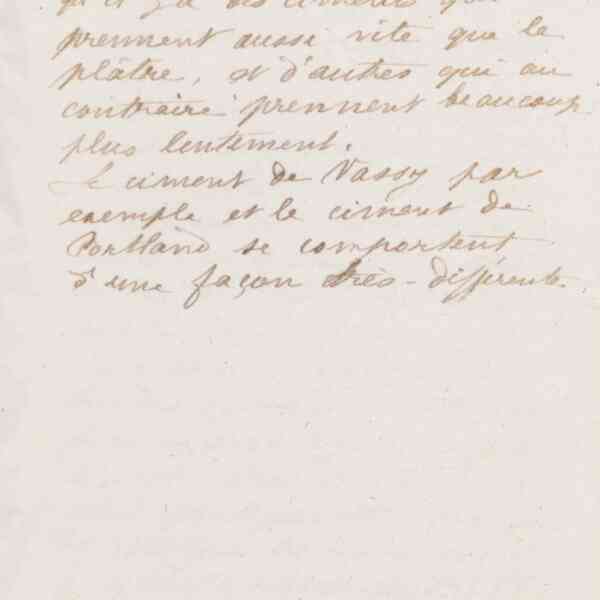 qu'il y a des ciments qui
prennent aussi vite que le
plâtre, et d'autres qui au
contraire prennent beaucoup
plus lentement.
Le ciment de Vassy par
exemple et le ciment de
Portland se comportent
d'une façon très-différente.